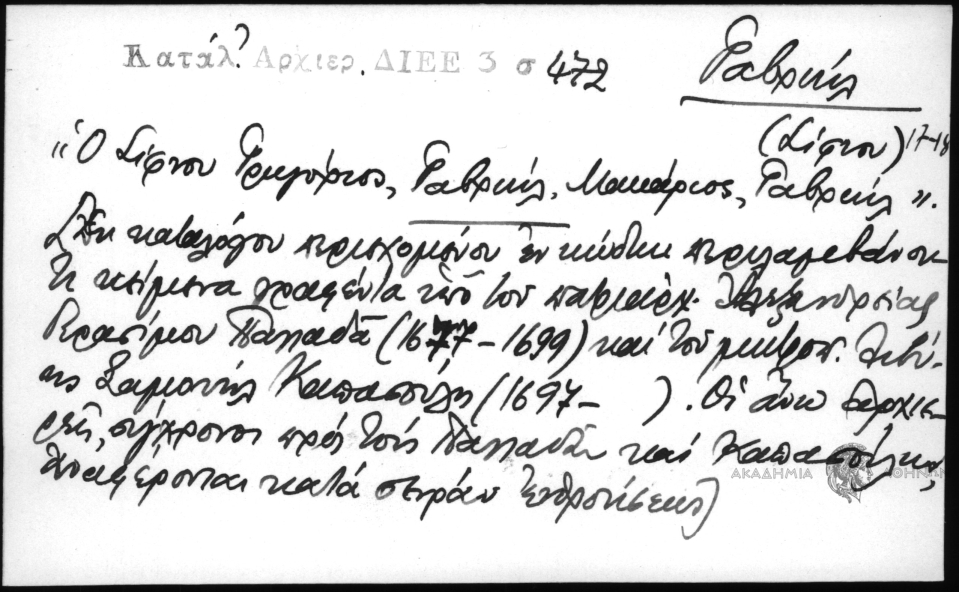 Κατάλ. Αρχιερ. ΔΙΕΕ 3 σ 472
Γαβριήλ
(Σίφνου) 17-18
"Ὁ Σίφνου Γρηγόριος, Γαβριήλ, Μακάριος, Γαβριήλ".
(Ἐκ καταλόγου περιεχομένου ἐν κώδικι περιλαμβάνον-
τι κείμενα γραφέντα ὑπὸ τοῦ πατριάρχ. Ἀλεξανδρείας
Γερασίμου Παλλαδᾶ (1677-1699) καὶ τοῦ μητροπ. Λιβύ-
ης Σαμουήλ Καπασούλη (1697- ). Οἱ ἄνω ἀρχιε-
ρεῖς, σύγχρονοι πρὸς τοὺς Παλλαδᾶν καὶ Καπασούλην,
ἀναφέρονται κατὰ σειρὰν ἐνθρονίσεως)
ΑΚΑΔΗΜΙΑ ΑΘΗΝΩΝ